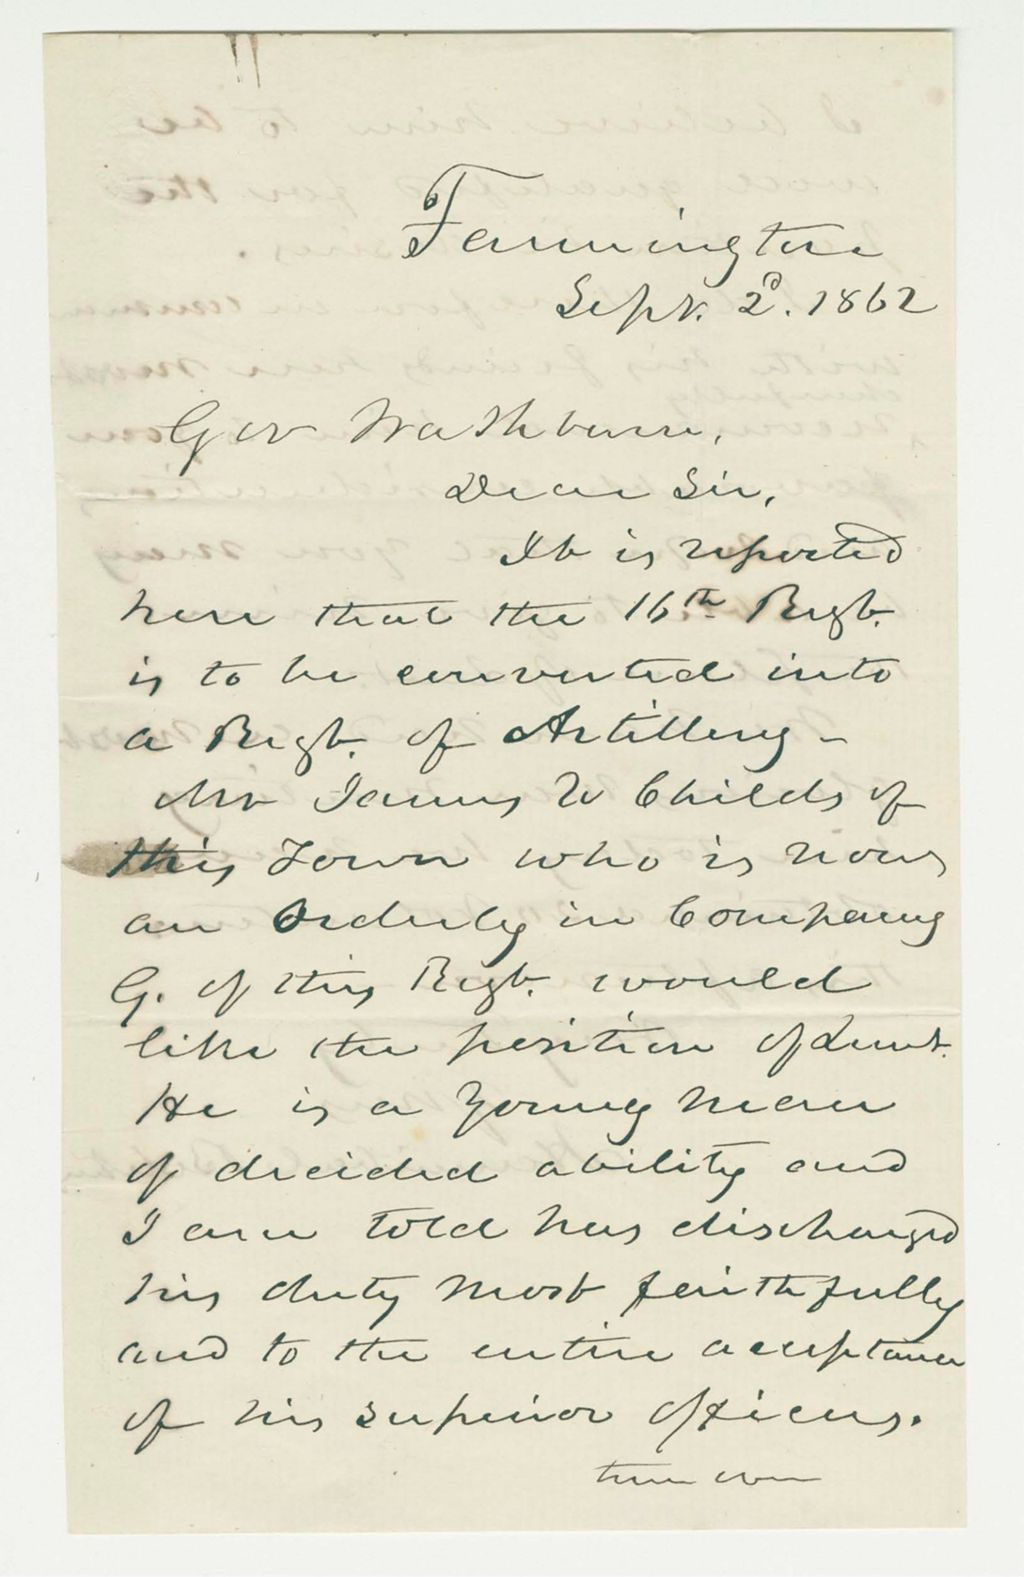 Farmington
Sept. 2d. 1862
Gov Washburn,
Dear Sir,
It is reported
here that the 16th Regt.
is to be converted into
a Regt. of Artillery -
Mr James W Childs of
this Town who is now
an Orderly in Company
G. of this Regt. would
like the position of Lieut.
He is a young man
of decided ability and
I am told has discharged
his duty most faithfully
and to the entire acceptance
of his superior officers.
turn over